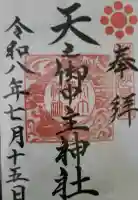 奉拝
天之御中主神社
令和八年七月十五日